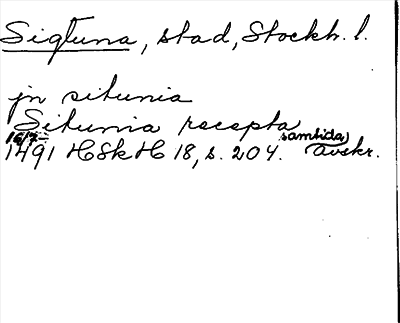 Sigtuna, stad, Stockh. l.
jn situnia
Situnia recepta
16/7 1491 HSkH 18, s. 204. samtida avskr.